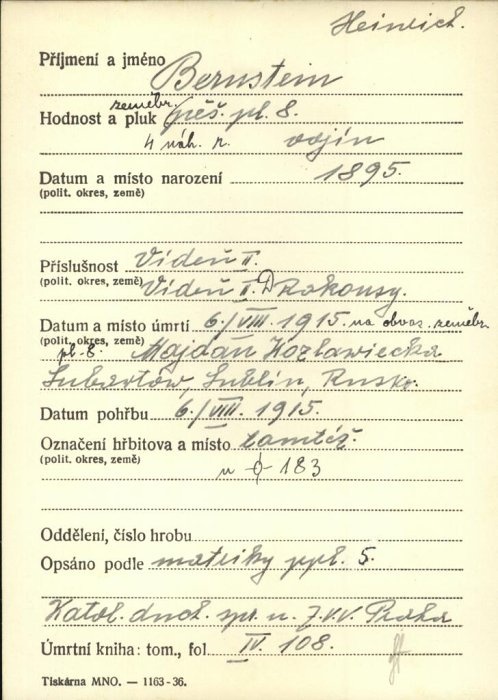 Heinrich.
Příjmení a jméno Bernstein
zeměbr.
Hodnost a pluk pěš. pl. 8.
4 náh. r. vojín
Datum a místo narození 1895.
(polit. okres, země)
Příslušnost Vídeň II.
(polit. okres, země) Vídeň II. D. Rakousy.
Datum a místo úmrtí 6./VIII. 1915. na obvaz. zeměbr.
(polit. okres, země)
pl. 8. Majdan Kozlawiecka
Lubartów, Lublin, Rusko.
Datum pohřbu 6./VIII. 1915.
Označení hřbitova a místo tamtéž.
(polit. okres, země)
183
Oddělení, číslo hrobu
Opsáno podle matriky ppl. 5.
Katol. duch. spr. u. z. v. v. Praha
Úmrtní kniha: tom., fol. IV. 108.
Tiskárna MNO. — 1163-36.